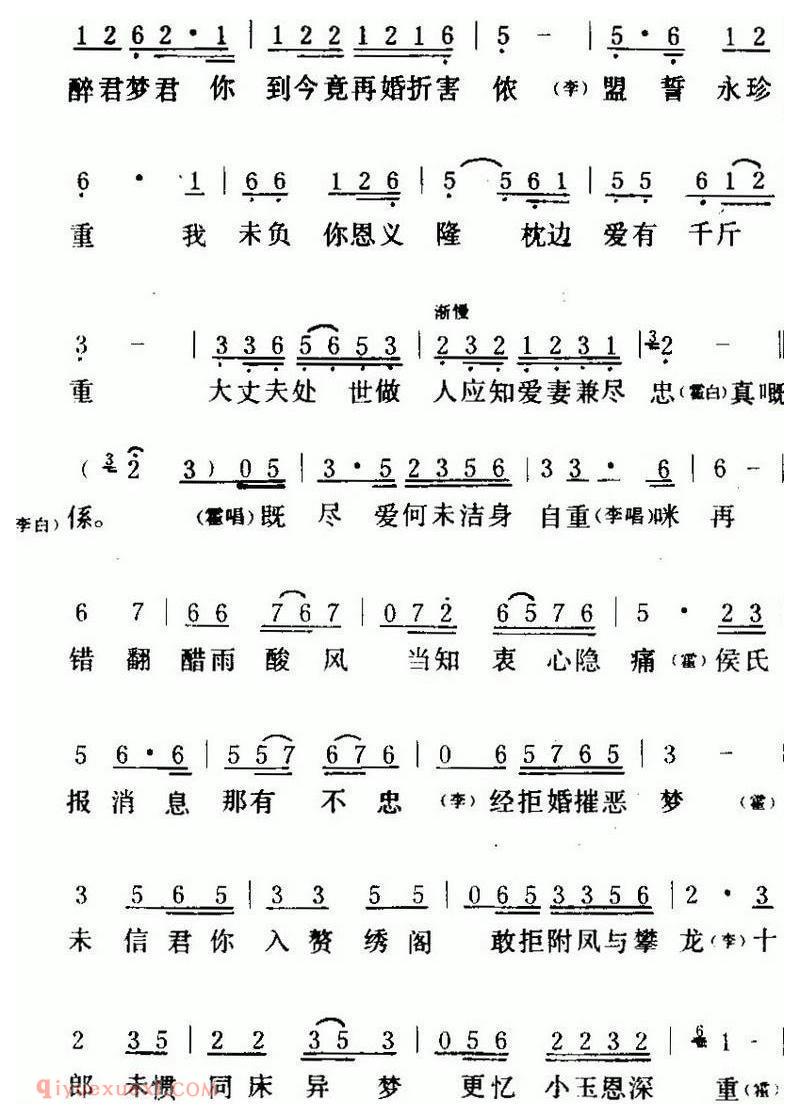 1 2 6 2 · 1 | 1 2 2 1 2 1 6 | 5 − | 5 · 6 1 2
醉君梦君 你 到今竟再婚折害 侬 (李) 盟 誓 永珍
6 · 1 | 6 6 1 2 6 | 5 5 6 1 | 5 5 6 1 2
重 我 未负 你恩义 隆 枕边 爱有 千斤
渐慢
3 − | 3 3 6 5 6 5 3 | 2 3 2 1 2 3 1 | 3 2 − ‖
重 大丈夫处 世做 人应知爱妻兼尽 忠 (霍白) 真嘅
( 3 2 3 ) 0 5 | 3 · 5 2 3 5 6 | 3 3 · 6 | 6 − |
李白) 係。 (霍唱) 既 尽 爱何未洁身 自重 (李唱) 咪 再
6 7 | 6 6 7 6 7 | 0 7 2 6 5 7 6 | 5 · 2 3
错 翻 醋雨 酸 风 当知 衷 心隐 痛 (霍) 侯氏
5 6 · 6 | 5 5 7 6 7 6 | 0 6 5 7 6 5 | 3 − |
报 消 息 那有 不 忠 (李) 经拒婚摧恶 梦 (霍)
3 5 6 5 | 3 3 5 5 | 0 6 5 3 3 5 6 | 2 · 3
未 信君你 入 赘 绣 阁 敢拒附凤与攀 龙 (李) 十
2 3 5 | 2 2 3 5 3 | 0 5 6 2 2 3 2 | 6 1 − |
郎 未惯 同 床 异 梦 更忆 小玉恩深 重 (霍)
qiyuexuexi.COM